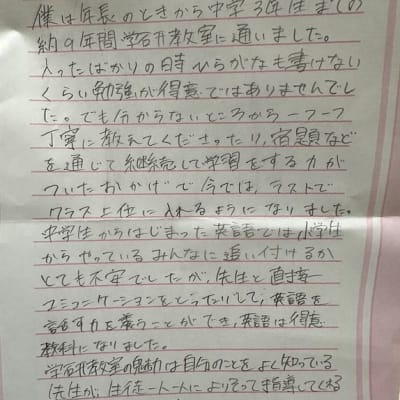 僕は年長のときから中学3年生までの
約9年間学研教室に通いました。
入ったばかりの時ひらがなも書けない
くらい勉強が得意ではありませんでし
た。でも分からないところから一つ一つ
丁寧に教えてくださったり,宿題など
を通じて継続して学習をする力が
ついたおかげで今では,テストで
クラス上位に入れるようになりました。
中学生からはじまった英語では小学生
からやっているみんなに追い付けるか
とても不安でしたが,先生と直接
コミュニケーションをとったりして,英語を
話す力を養うことができ,英語は得意
教科になりました。
学研教室の魅力は自分のことをよく知っている
先生が,生徒一人一人によりそって指導してくれる